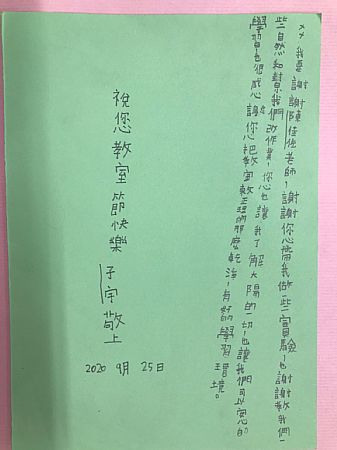 ××我要謝謝陳佳 老師,謝謝您帶我做一些實驗,也謝謝教我們一
些自然和幫我們改作業,您也讓我了解大陽的一切,也讓我們可以安心的
學習也很感心,您把教室整理的那麼乾淨,有好的學習環境。
祝您教室節快樂
子宇敬上
2020 9月 25日